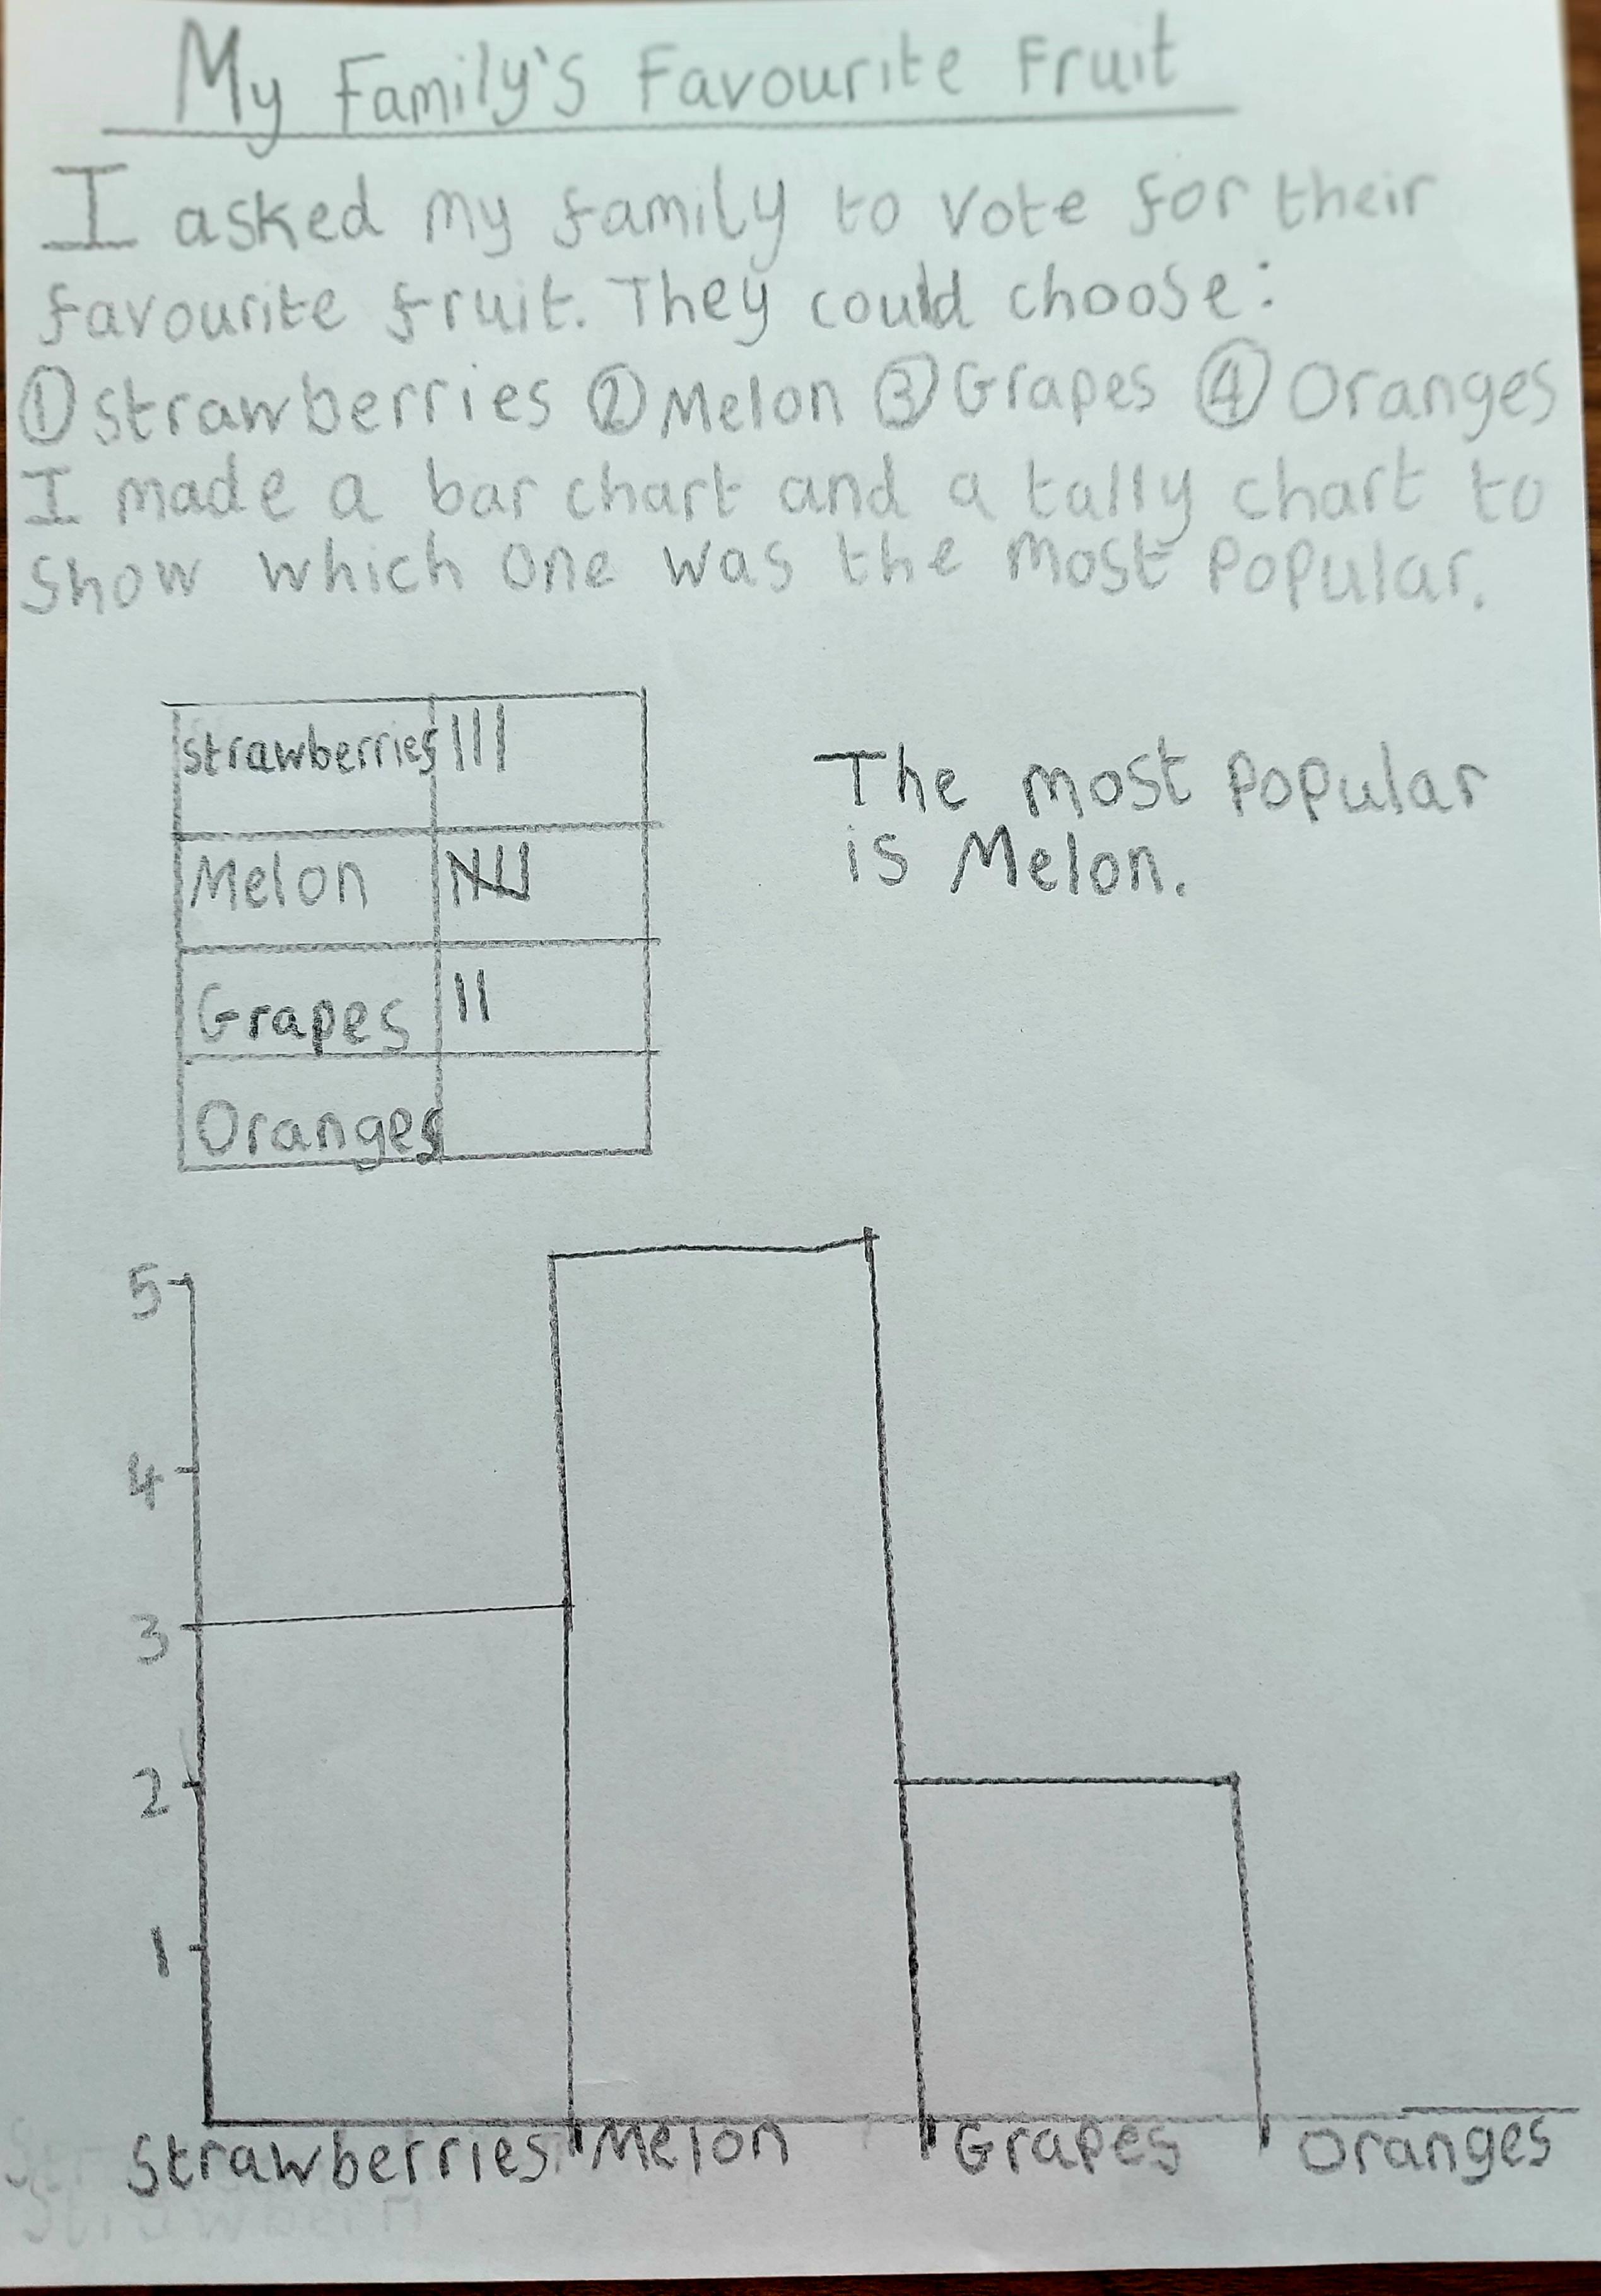 My Family's Favourite Fruit
I asked my family to vote for their
favourite fruit. They could choose:
① Strawberries ② Melon ③ Grapes ④ Oranges
I made a bar chart and a tally chart to
show which one was the most popular.
Strawberries |||
Melon 𝍸
Grapes ||
Oranges
The most popular
is Melon.
5
4
3
2
1
Strawberries Melon Grapes Oranges